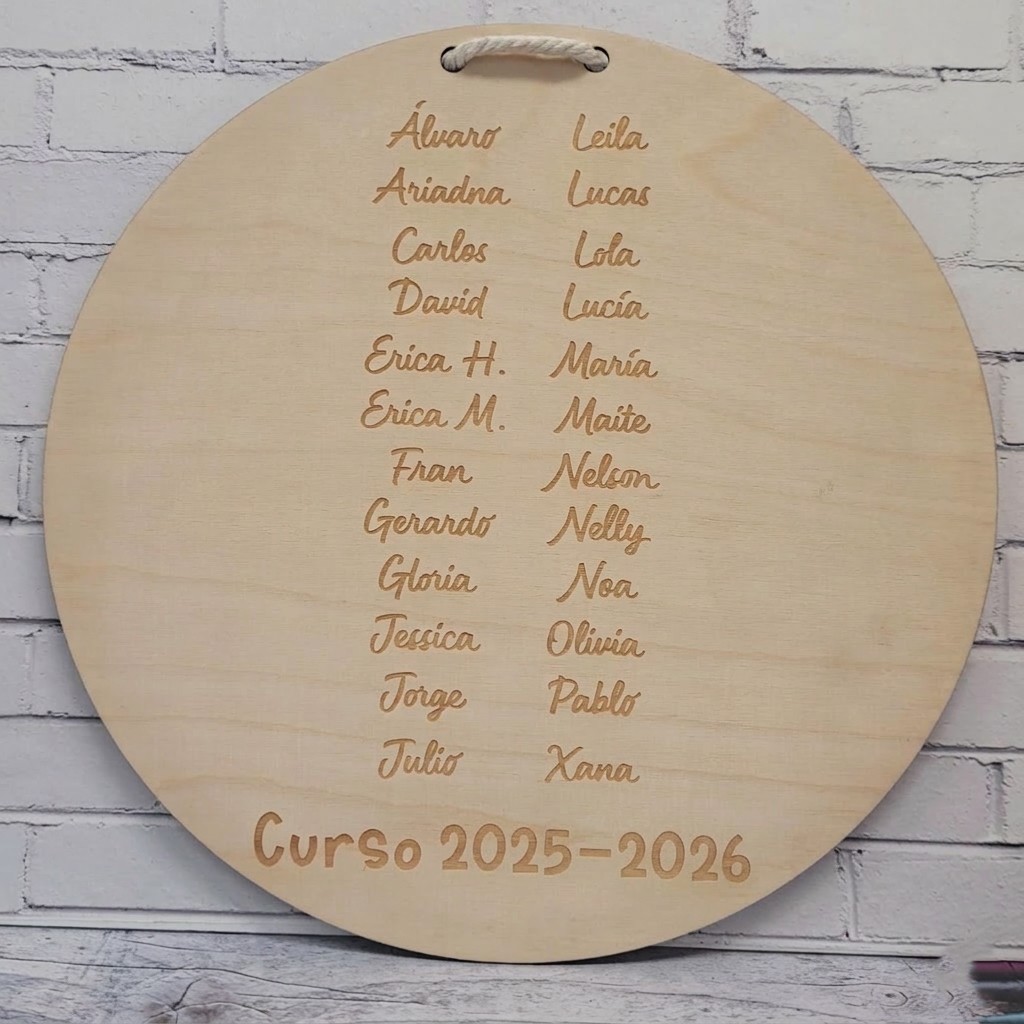 Álvaro Leila
Ariadna Lucas
Carlos Lola
David Lucía
Erica H. María
Erica M. Maite
Fran Nelson
Gerardo Nelly
Gloria Noa
Jessica Olivia
Jorge Pablo
Julio Xana
Curso 2025-2026